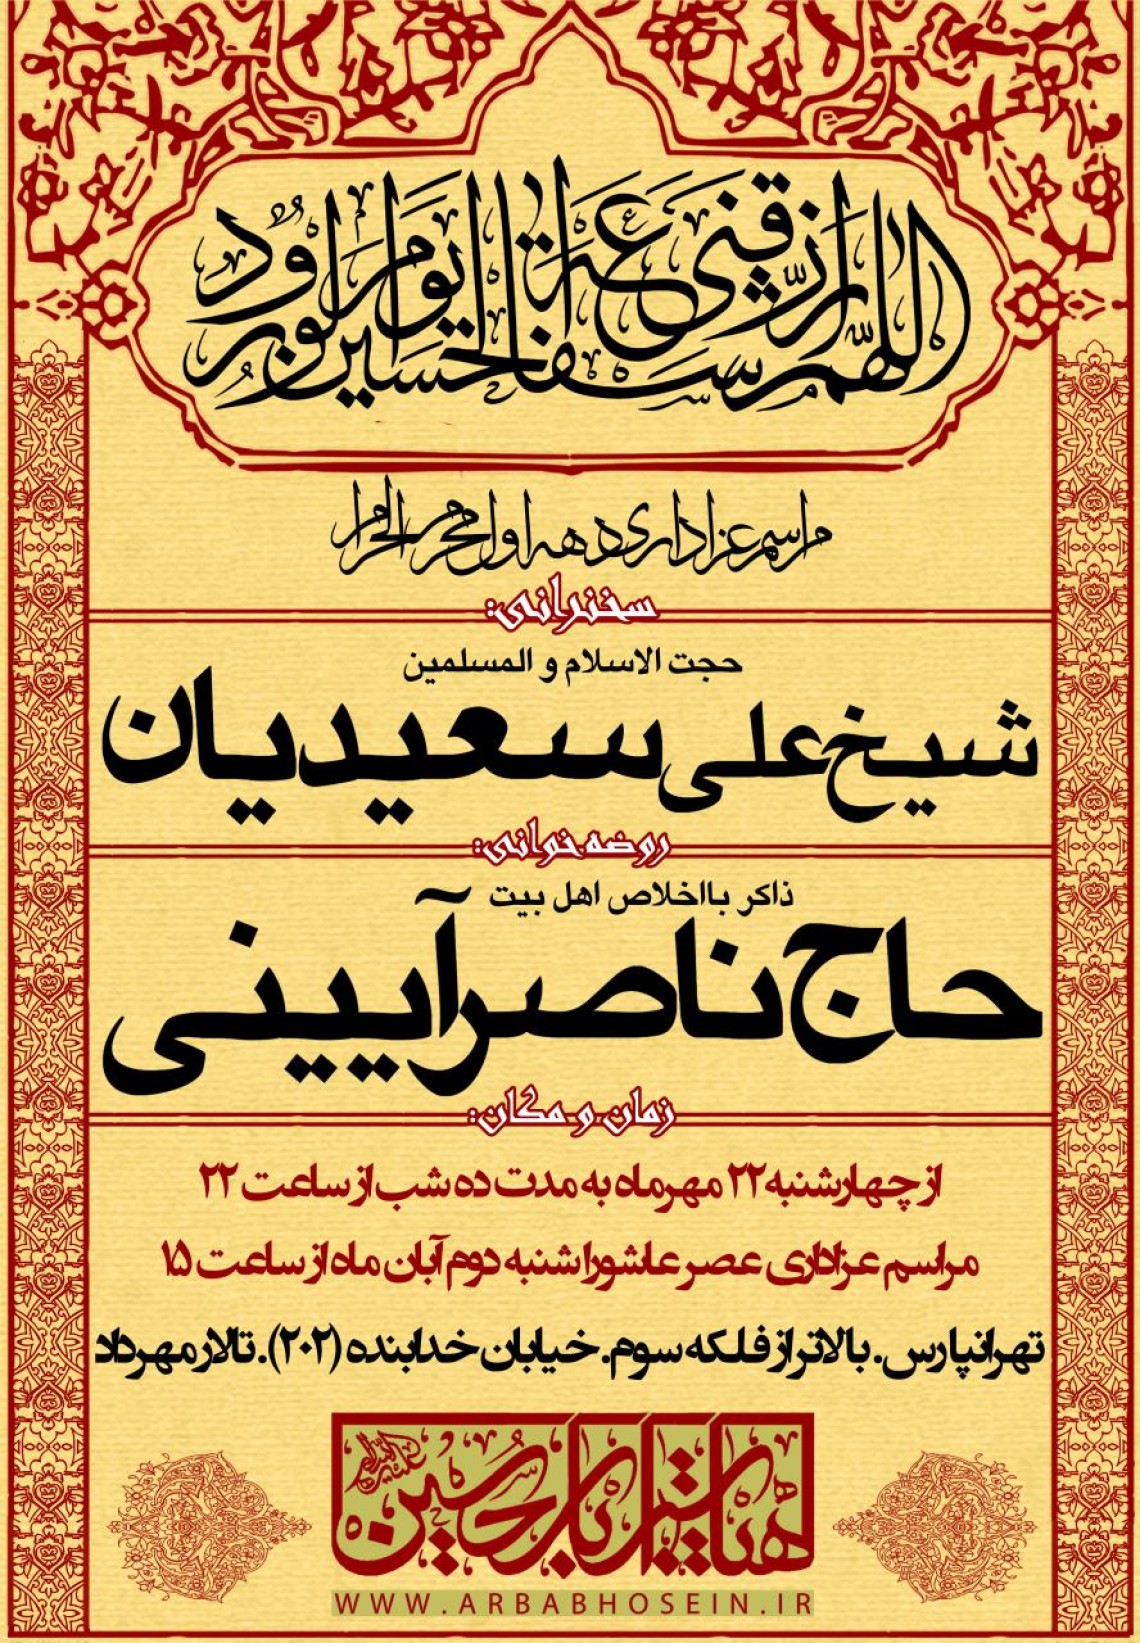 اللهم ارزقنی شفاعة الحسین یوم الورود
مراسم عزاداری دهه اول محرم الحرام
سخنرانی:
حجت الاسلام و المسلمین
شیخ علی سعیدیان
روضه خوانی:
ذاکر بااخلاص اهل بیت
حاج ناصر آیینی
زمان و مکان:
از چهارشنبه ۲۲ مهرماه به مدت ده شب از ساعت ۲۲
مراسم عزاداری عصر عاشورا شنبه دوم آبان ماه از ساعت ۱۵
تهرانپارس. بالاتر از فلکه سوم. خیابان خدابنده (۲۰۲). تالار مهرداد
هیات ارباب حسین
WWW.ARBABHOSEIN.IR